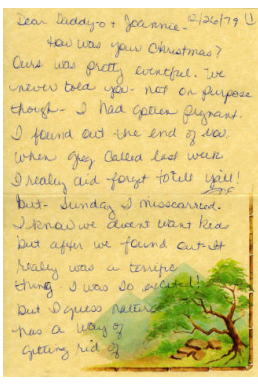 Dear Daddy-o + Joannie- 12/26/79 1
How was your Christmas?
Ours was pretty eventful. We
never told you- not on purpose
though- I had gotten pregnant.
I found out the end of Nov.
when Greg called last week
I really did forget to tell y'all!
But- Sunday I misscarried.
I know we didn't want kids
but after we found out- it
really was a terrific
thing. I was so excited!
but I guess nature
has a way of
getting rid of